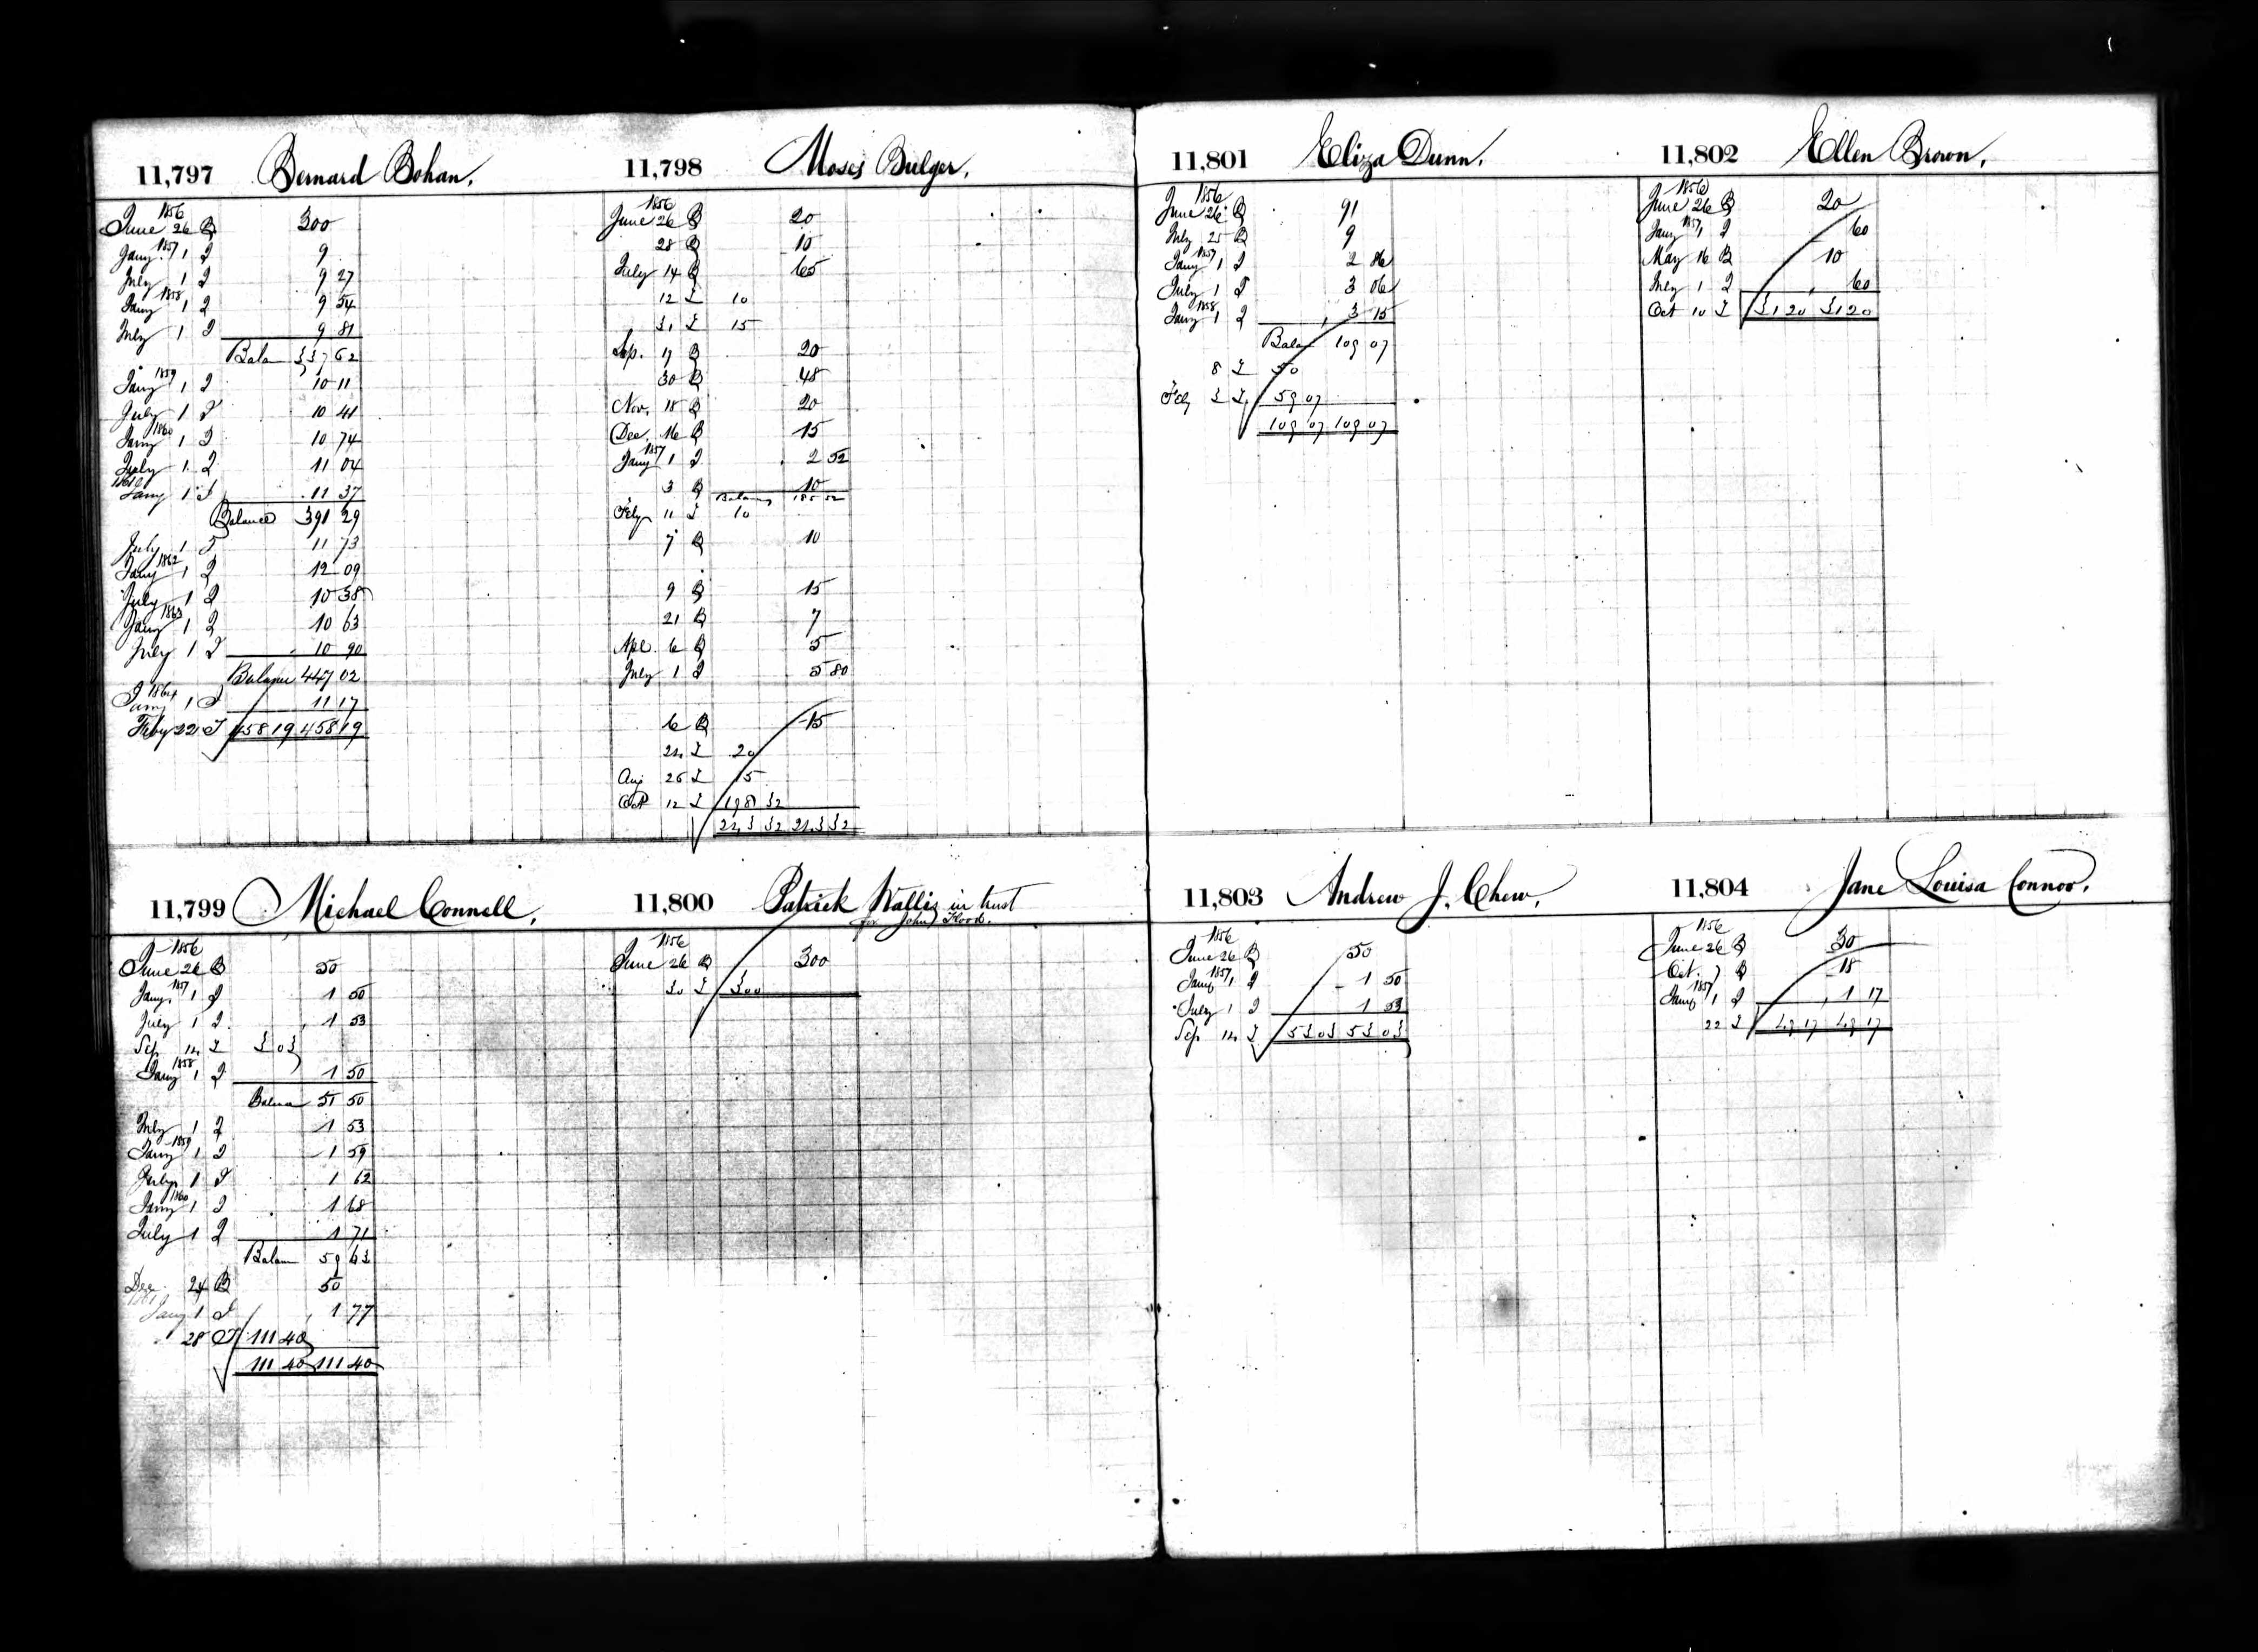 11,797 Bernard Bohan.
1856
June 26 B 300
1857
Jany 1 I 9
July 1 I 9 27
1858
Jany 1 I 9 54
July 1 I 9 81
Balan 337 62
1859
Jany 1 I 10 11
July 1 I 10 41
1860
Jany 1 I 10 74
July 1 I 11 04
1861
Jany 1 I 11 37
Balance 391 29
July 1 I 11 73
1862
Jany 1 I 12 09
July 1 I 10 38
1863
Jany 1 I 10 63
July 1 I 10 90
Balance 447 02
1864
Jany 1 I 11 17
Feby 22 I 458 19 458 19
11,798 Moses Bulger.
1856
June 26 B 20
28 B 10
July 14 B 65
12 I 10
31 I 15
Sep. 17 B 20
30 B 48
Nov. 18 B 20
Dec. 16 B 15
1857
Jany 1 I 2 52
3 B 10
Balance 185 52
Feby 11 I 10
7 B 10
9 B 15
21 B 7
Apl. 6 B 5
July 1 I 5 80
6 B 15
24 I 20
Aug 26 I 15
Oct 12 I 198 32
243 32 243 32
11,799 Michael Connell.
1856
June 26 B 50
1857
Jany. 1 I 1 50
July 1 I 1 53
Sep. 14 I 3 03
1858
Jany 1 I 1 50
Balan 51 50
July 1 I 1 53
1859
Jany 1 I 1 59
July 1 I 1 62
1860
Jany 1 I 1 68
July 1 I 1 71
Balan 59 63
Dec. 24 B 50
1861
Jany 1 I 1 77
28 I 111 40
111 40 111 40
11,800 Patrick Wallis in trust
for John Flood.
1856
June 26 B 300
30 I 300
11,801 Eliza Dunn.
1856
June 26 B 91
July 25 B 9
1857
Jany 1 I 2 86
July 1 I 3 06
1858
Jany 1 I 3 15
Balan 109 07
8 I 50
Feby 3 I 59 07
109 07 109 07
11,802 Ellen Brown.
1856
June 26 B 20
1857
Jany 1 I 60
May 16 B 10
July 1 I 60
Oct 10 I 31 20 31 20
11,803 Andrew J. Chew.
1856
June 26 B 50
1857
Jany 1 I 1 50
July 1 I 1 53
Sep 14 I 53 03 53 03
11,804 Jane Louisa Connor.
1856
June 26 B 30
Oct. 7 B 18
1857
Jany 1 I 1 17
22 I 49 17 49 17